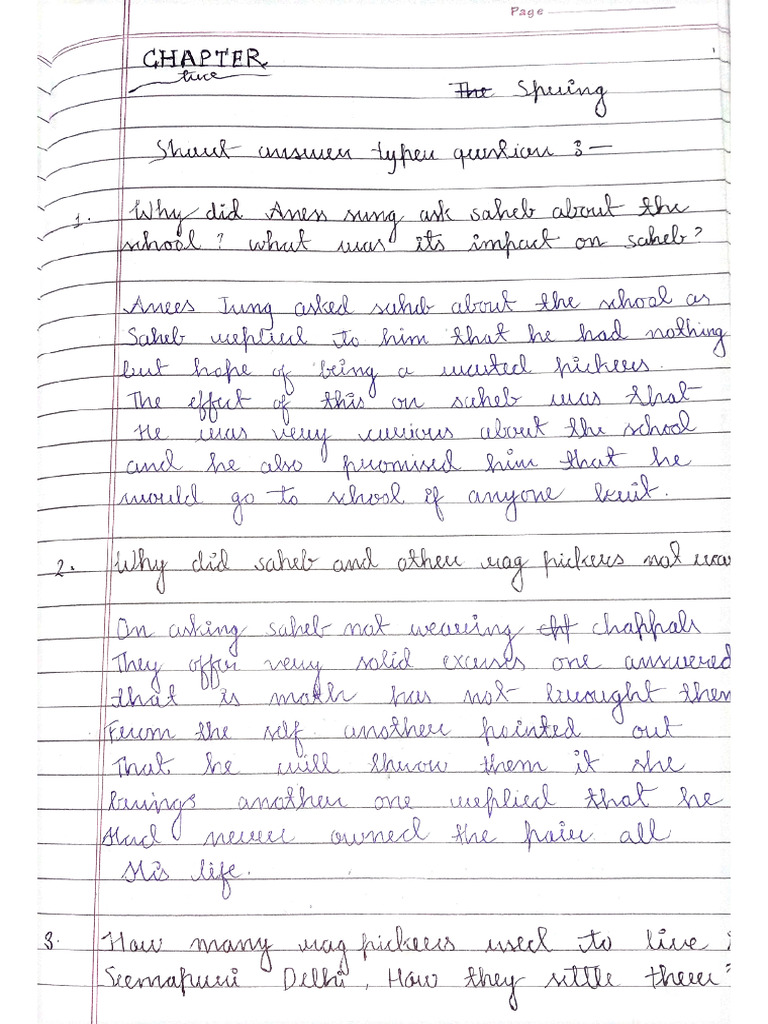 Page
CHAPTER
two
The Spring
Short answer type question :—
1. Why did Aness sung ask saheb about the
school? what was its impact on saheb?
Anees Jung asked saheb about the school as
Saheb replied to him that he had nothing
but hope of being a pickers.
The effect of this on saheb was that
He was very curious about the school
and he also promised him that he
would go to school if anyone built.
2. Why did saheb and other rag pickers not
On asking saheb not wearing chappals
They offer very solid excuses one answered
that is moth has not brought them
From the self another pointed out
That he will throw them it she
brings another one replied that he
Had never owned the pair all
His life.
3. How many rag pickers used to live
Seemapuri Delhi, How they sittle there?